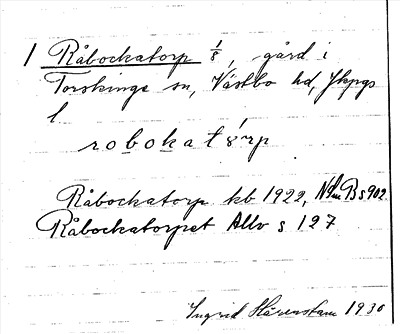 1 Råbockatorp 1/8, gård i
Torskinge sn, Västbo hd, Jkpgs
l
robokatörp
Råbockatorp kb 1922, B s 902
Råbockatorpet Allv s 127
Ingrid Härenstam 1930